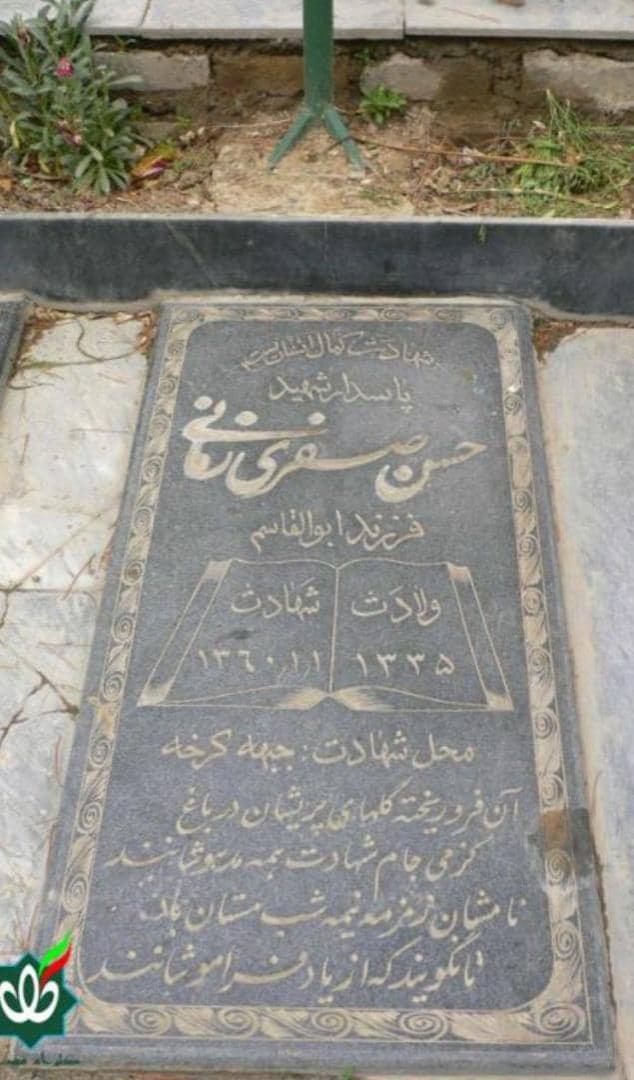 شهادت کمال انسان است
پاسدار شهید
حسن صفری زمانی
فرزند ابوالقاسم
ولادت
۱۳۳۵
شهادت
۱۳۶۰.۱۱
محل شهادت: جبهه کرخه
آن فرو ریخته گلهای پریشان در باغ
کز می جام شهادت همه مدهوشانند
نامشان زمزمه نیمه شب مستان باد
تا نگویند که از یاد فراموشانند